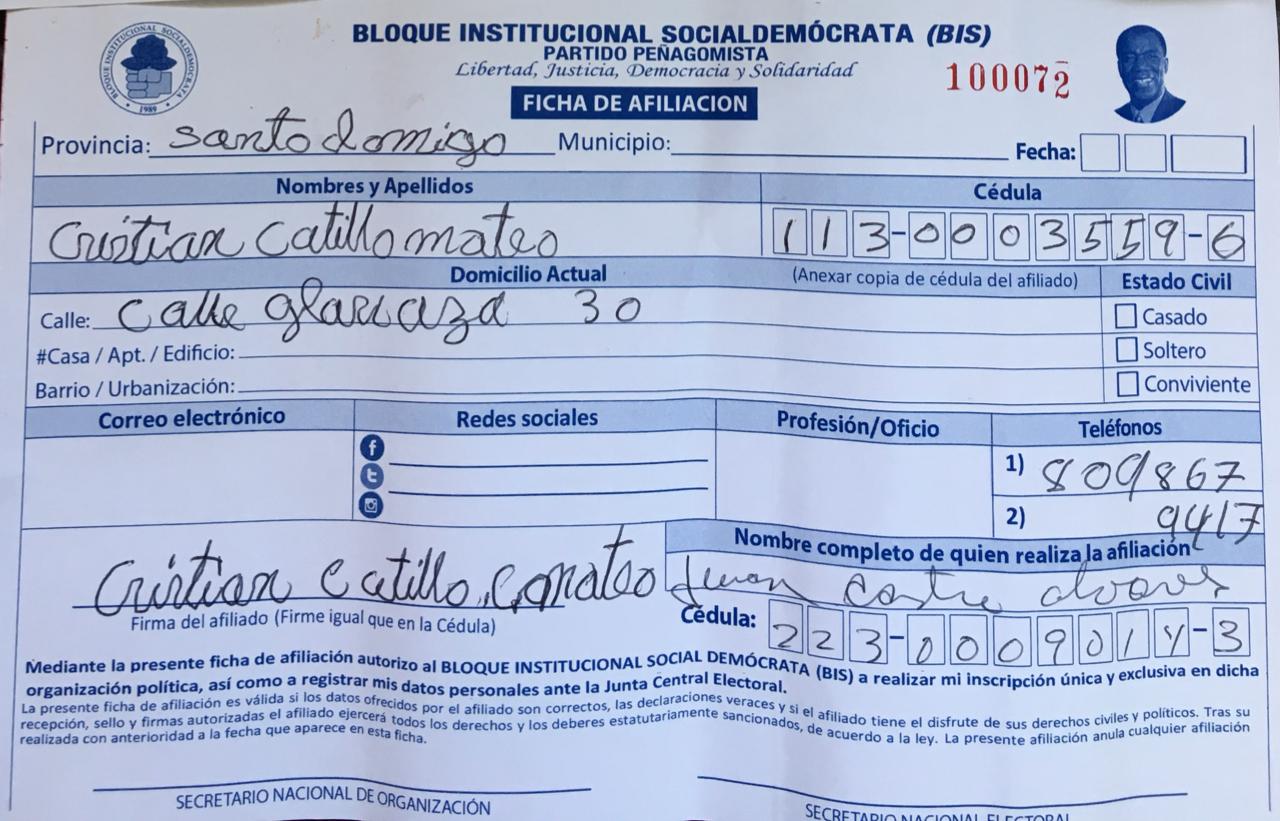 BLOQUE INSTITUCIONAL SOCIALDEMÓCRATA (BIS)
PARTIDO PEÑAGOMISTA
Libertad, Justicia, Democracia y Solidaridad
100072
BLOQUE INSTITUCIONAL SOCIALDEMÓCRATA
1989
FICHA DE AFILIACION
Provincia: santo domigo Municipio: Fecha:
Nombres y Apellidos Cédula
Cristian Catillo mateo 113-0003559-6
Domicilio Actual (Anexar copia de cédula del afiliado) Estado Civil
Calle: calle 30 Casado
#Casa / Apt. / Edificio: Soltero
Barrio / Urbanización: Conviviente
Correo electrónico Redes sociales Profesión/Oficio Teléfonos
1) 809867
2) 9417
Nombre completo de quien realiza la afiliación
Cristian Catillo
Juan
Firma del afiliado (Firme igual que en la Cédula) Cédula: 223-0009014-3
Mediante la presente ficha de afiliación autorizo al BLOQUE INSTITUCIONAL SOCIAL DEMÓCRATA (BIS) a realizar mi inscripción única y exclusiva en dicha
organización política, así como a registrar mis datos personales ante la Junta Central Electoral.
La presente ficha de afiliación es válida si los datos ofrecidos por el afiliado son correctos, las declaraciones veraces y si el afiliado tiene el disfrute de sus derechos civiles y políticos. Tras su
recepción, sello y firmas autorizadas el afiliado ejercerá todos los derechos y los deberes estatutariamente sancionados, de acuerdo a la ley. La presente afiliación anula cualquier afiliación
realizada con anterioridad a la fecha que aparece en esta ficha.
SECRETARIO NACIONAL DE ORGANIZACIÓN
SECRETARIO NACIONAL ELECTORAL